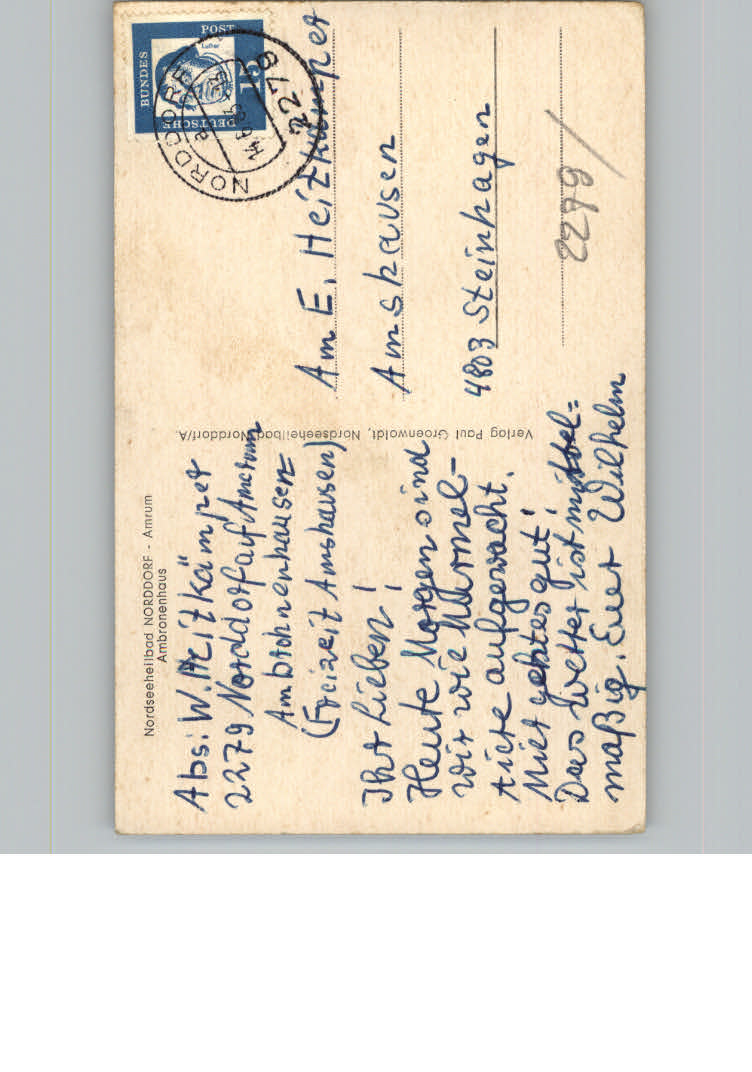 Nordseeheilbad NORDDORF - Amrum
Ambronenhaus
Abs: W. Heitkämper
2279 Norddorf auf Amrum
Ambronenhausen
(Freizeit Amshausen)
Ihr Lieben!
Heute Morgen sind
wir wie Murmel-
tiere aufgewacht.
Mir geht es gut!
Das Wetter ist mittel=
mäßig. Euer Wilhelm
Verlag Paul Groenwoldt, Nordseeheilbad Norddorf/A.
DEUTSCHE BUNDESPOST
Luther
15
NORDDORF
2279
An E. Heitkämper
Amshausen
4803 Steinhagen
2279/